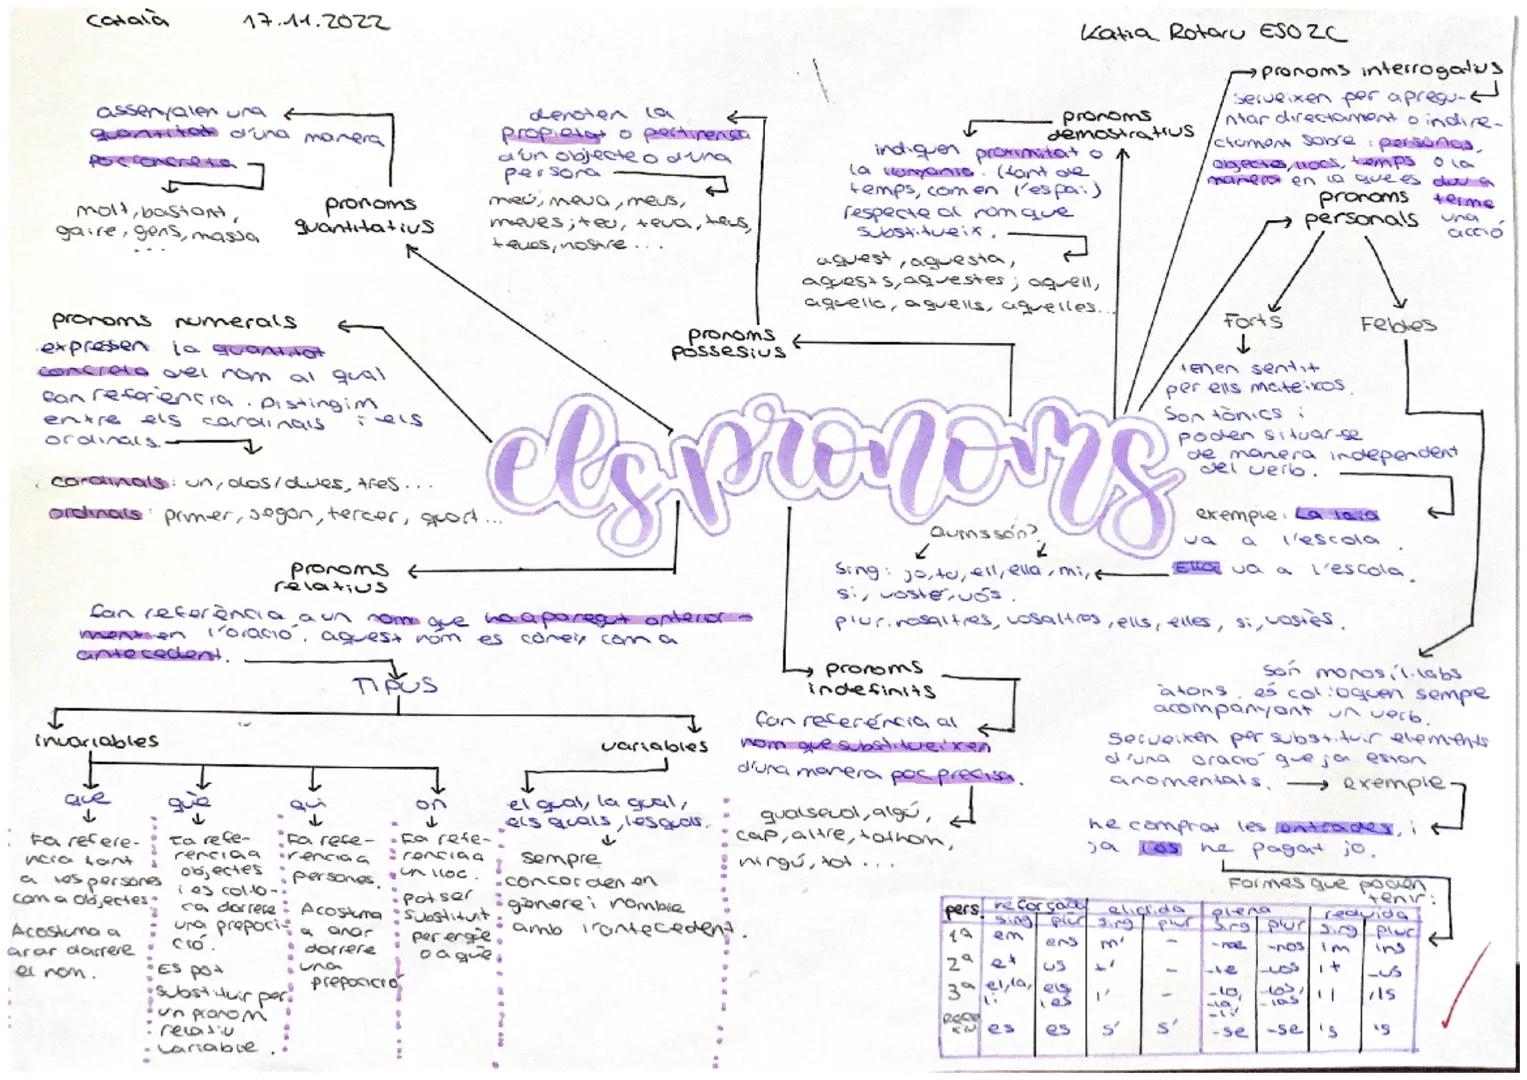 Català 17.11.2022
Katia Rotaru ESO2C
els pronoms
assenyalen una
quantitat d'una manera
poc concreta
molt, bastant,
gaire, gens, massa
...
pronoms
quantitatius
denoten la
propietat o pertinença
d'un objecte o d'una
persona
meu, meva, meus,
meves; teu, teva, teus,
teves, nostre...
pronoms
possesius
pronoms
demostratius
indiquen proximitat o
la llunyania. (tant de
temps, com en l'espai)
respecte al nom que
substitueix.
aquest, aquesta,
aquests, aquestes; aquell,
aquella, aquells, aquelles...
pronoms interrogatius
serveixen per a pregu-
ntar directament o indire-
ctament sobre: persones,
objectes, llocs, temps o la
manera en la que es du a
terme
una
acció
pronoms
personals
Forts
Febles
tenen sentit
per ells mateixos.
Son tònics i
poden situar-se
de manera independent
del verb.
exemple: La laia
va a l'escola.
Ella va a l'escola.
Quins són?
Sing: jo, tu, ell, ella, mi,
si, vostè, vós.
plur: nosaltres, vosaltres, ells, elles, si, vostès.
pronoms numerals
expressen la quantitat
concreta del nom al qual
fan referència. Distingim
entre els cardinals i els
ordinals.
cardinals: un, dos/dues, tres...
ordinals: primer, segon, tercer, quart...
pronoms
relatius
fan referència a un nom que ha aparegut anterior-
ment en l'oració. aquest nom es coneix com a
antecedent.
TIPUS
invariables
variables
que
Fa refere-
ncia tant
a les persones
com a objectes.
Acostuma a
anar darrere
el nom.
què
Fa refe-
rencia a
objectes
i es col·lo-
ca darrere
una preposi-
ció.
ES pot
substituir per
un pronom
relatiu
variable.
qui
Fa refe-
rencia a
persones.
Acostuma
a anar
darrere
una
preposició
on
Fa refe-
rencia a
un lloc.
pot ser
substituit
per en què
o a què.
el qual, la qual,
els quals, les quals.
sempre
concorden en
gènere i nombre
amb l'antecedent.
pronoms
indefinits
fan referéncia al
nom que substitueixen
d'una manera poc precisa.
qualsevol, algú,
cap, altre, tothom,
ningú, tot...
són monosíl·labs
àtons. es col·loquen sempre
acompanyant un verb.
Serveixen per substituir elements
d'una oració que ja estan
anomenats. → exemple
he comprat les entrades, i
ja les he pagat jo.
Formes que poden
tenir:
pers. reforçada elidida plena reduida
sing plur sing plur sing plur sing plur
1ª em ens m' - -me -nos 'm 'ns
2ª et us t' - -te -vos 't -us
3ª el, la, li els, les l' - -lo, -la, -li -los, -las 'l 'ls
es es s' s' -se -se 's 's